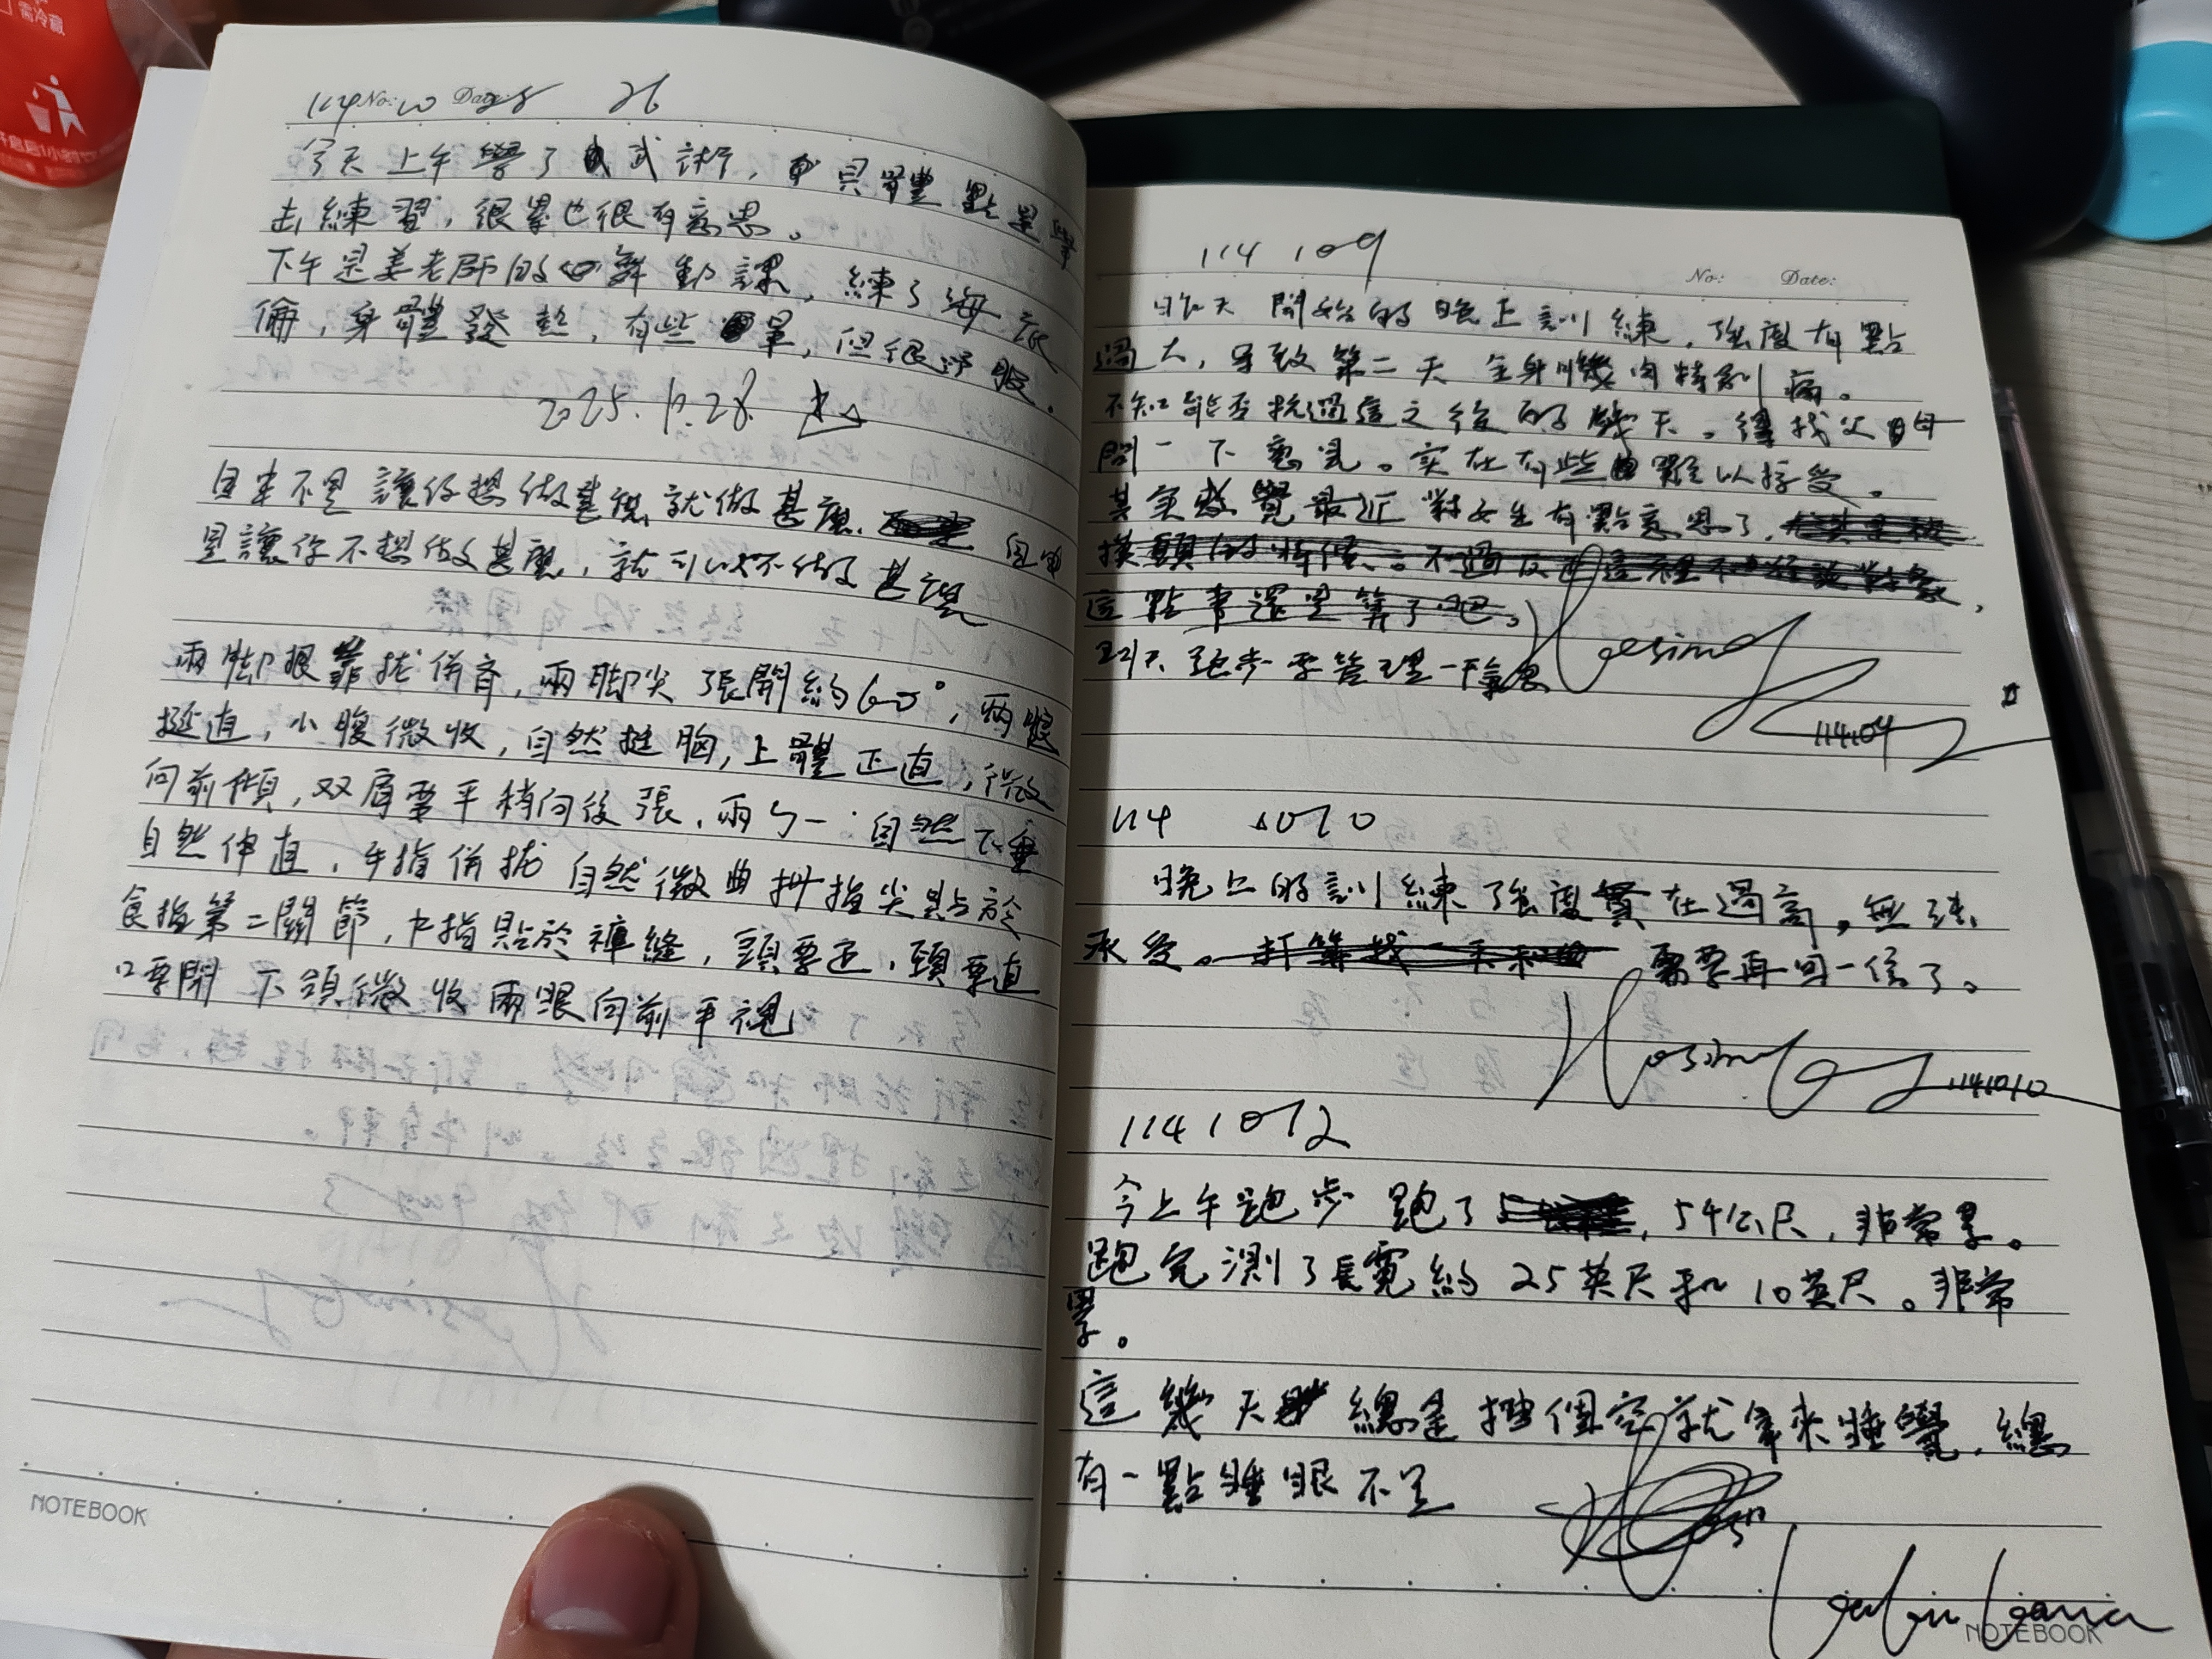 需冷藏
114 No: 10 Date: 26
今天上午學了武術,具體點是學
去練習,很累也很有意思。
下午是姜老師的舞動課,練了海底
倫,身體發熱,有些暈,但很舒服。
2025.10.28.
自由不是讓你想做甚麼就做甚麼,自由
是讓你不想做甚麼,就可以不做甚麼
兩腳跟靠拢併齊,兩腳尖張開約60°,兩腿
挺直,小腹微收,自然挺胸,上體正直,微
向前傾,双肩要平稍向後張,兩自然下垂
自然伸直,手指併拢自然微曲拇指尖貼於
食指第二關節,中指貼於褲縫,頭要正,頸要直
口要閉 下頜微收兩眼向前平視
NOTEBOOK
114 109
No: Date:
昨天開始的晚上訓練,強度有點
過大,导致第二天全身肌肉特別痛。
不知能否抗過這之後的幾天。得找父母
問一下意見。实在有些難以接受。
其实感覺最近對女生有點意思了,
摸頭的
這點事還是算了吧。
明天跑步要管理一下氣息
Hesimof
114.10.9
114 1010
晚上的訓練強度實在過高,無法
承受。打算找 需要再回一信了。
1141010
1141012
今上午跑步 跑了,54公尺,非常累。
跑完測了長寬約25英尺和10英尺。非常
累。
這幾天總是擋個空就拿來睡覺,總
有一點睡眠不足
NOTEBOOK